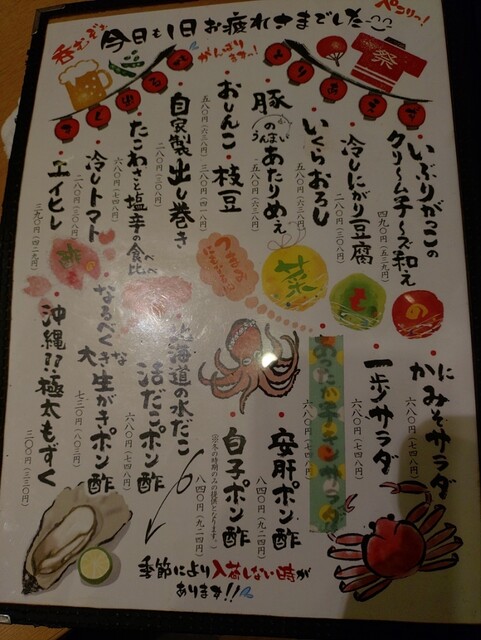 今日も1日お疲れさまでした
ペコリっ!
呑むぞぉ
がんばりまーっ!
祭
とりあえず
いぶりがっこの
クリームチーズ和え
四九〇円(五三九円)
冷しにがり豆腐
二八〇円(三〇八円)
いくらおろし
五八〇円(六三八円)
豚のうんまいあたりめぇ
五八〇円(六三八円)
おしんこ・枝豆
五八〇円(六三八円)
三八〇円(四一八円)
自家製出し巻き
たこわさと塩辛の食べ比べ
六八〇円(七四八円)
冷しトマト
二八〇円(三〇八円)
エイヒレ
三九〇円(四二九円)
菜
も
の
かにみそサラダ
六八〇円(七四八円)
一歩サラダ
六八〇円(七四八円)
あったかチキンサラダ
六八〇円(七四八円)
安肝ポン酢
八四〇円(九二四円)
白子ポン酢
八四〇円(九二四円)
※冬の時期のみの提供となります。
北海道の水だこ
活だこポン酢
六八〇円(七四八円)
なるべく大きな生がきポン酢
七三〇円(八〇三円)
沖縄??極太もずく
三〇〇円(三三〇円)
季節により入荷しない時が
あります!!